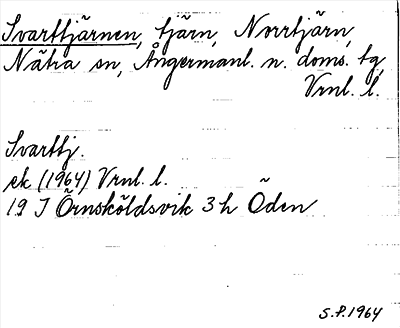 Svarttjärnen, tjärn, Norrtjärn,
Nätra sn, Ångermanl. n. doms. tg,
Vrnl. l.
Svarttj.
ek (1964) Vrnl. l.
19 J Örnsköldsvik 3 h Öden
S.P. 1964